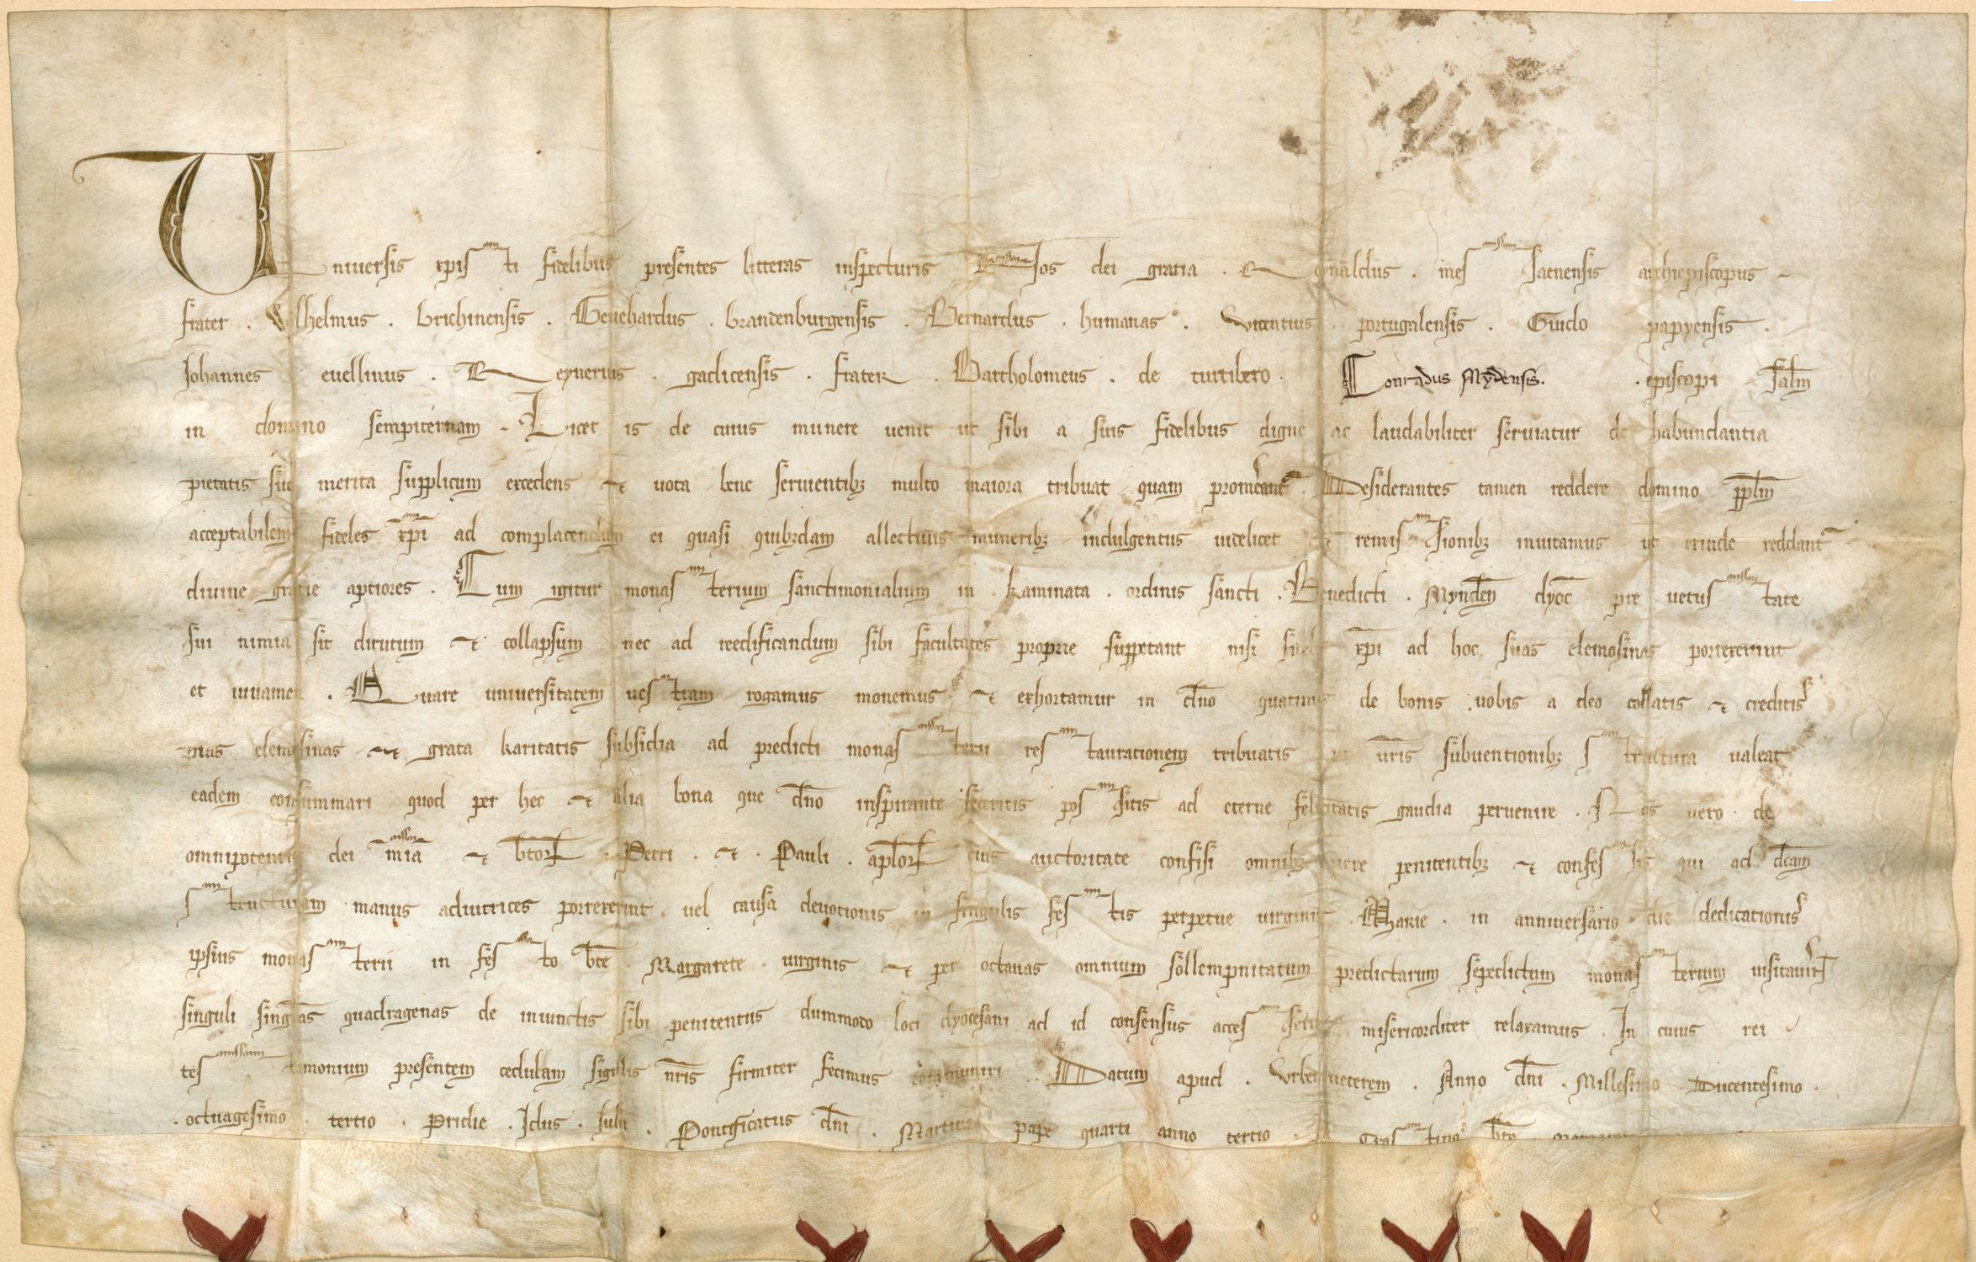 Universis xpisti fidelibus presentes litteras inspecturis Nos dei gratia . Reynaldus . messanensis archiepiscopus -
frater . Wilhelmus . brichinensis . Gevehardus . brandenburgensis . Bernardus . humanas . Vicentius portugalensis . Guido papyensis .
Iohannes evellinus . Reynerius . gaclicensis . frater . Bartholomeus . de turribero . Conradus Mydensis . episcopi salm
in domino sempiternam . Licet is de cuius munere venit ut sibi a suis fidelibus digne ac laudabiliter serviatur de habundantia
pietatis sue merita supplicum excedens et vota bene servientibz multo maiora tribuat quam promerant . Desiderantes tamen reddere domino pplm
acceptabilem fideles xpi ad complacendum ei quasi quibzdam allectivis muneribz indulgentiis videlicet et remissionibz invitamus ut exinde reddant
divine gratie aptiores . Cum igitur monasterium sanctimonialium in kaminata . ordinis sancti . Benedicti . Mynden dyoc pre vetustate
sui nimia sit dirutum et collapsum nec ad reedificandum sibi facultates proprie suppetant nisi fideles xpi ad hoc suas elemosinas porrexerint
et iuvamen . Quare universitatem vestram rogamus monemus et exhortamur in dno quatinus de bonis vobis a deo collatis et creditis
pias elemosinas et grata karitatis subsidia ad predicti monasterii restaurationem tribuatis ut vris subventionibz structura valeat
eadem consummari quod per hec et alia bona que dno inspirante feceritis possitis ad eterne felicitatis gaudia pervenire . Nos vero de
omnipotentis dei mia et btor . Petri . et . Pauli . aplor eius auctoritate confisi omnibz vere penitentibz et confessis qui ad dcam
structuram manus adiutrices porrexerint vel causa devotionis in singulis festis perpetue virginis . Marie . in anniversario die dedicationis
ipsius monasterii in festo bte . Margarete . virginis et per octavas omnium sollempnitatum predictarum sepedictum monasterium visitaverit
singuli singlas quadragenas de iniunctis sibi penitentiis dummodo loci dyocesani ad id consensus accesserit misericorditer relaxamus . In cuius rei
testimonium presentem cedulam sigillis nris firmiter fecimus communiri . Datum apud . Urbemveterem . Anno dni . Millesimo Ducentesimo .
. octuagesimo . tertio . Pridie . Idus . Iulii . Pontificatus dni . Martini pape quarti anno tertio . Crastino bte